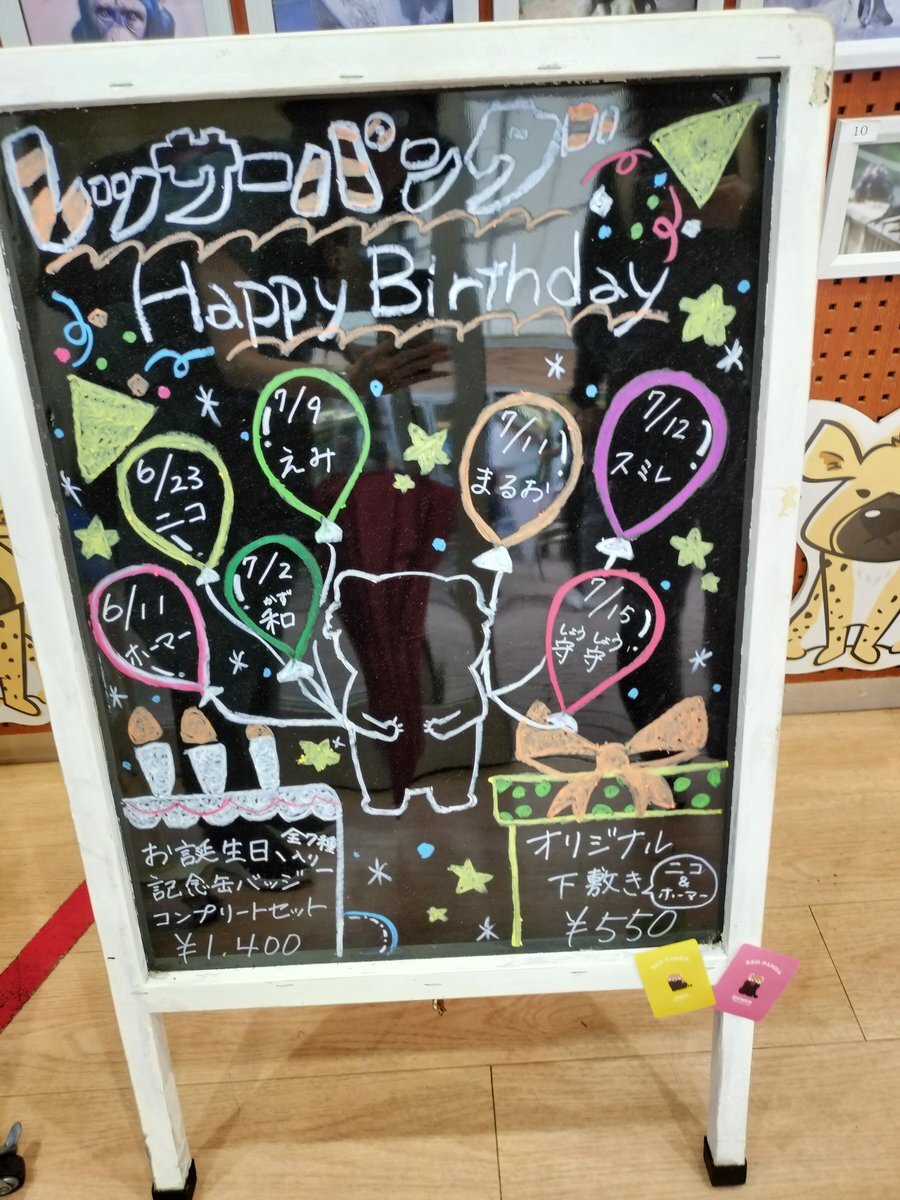 レッサーパンダ
Happy Birthday
7/9
えみ
7/11
まるお
7/12
スミレ
6/23
ニコ
7/2
かず
和
6/11
ホーマー
7/15
しょう しょう
守守
お誕生日入り 全7種
記念缶バッジ
コンプリートセット
¥1,400
オリジナル
下敷き
ニコ
&
ホーマー
¥550
10
RED PANDA
RED PANDA